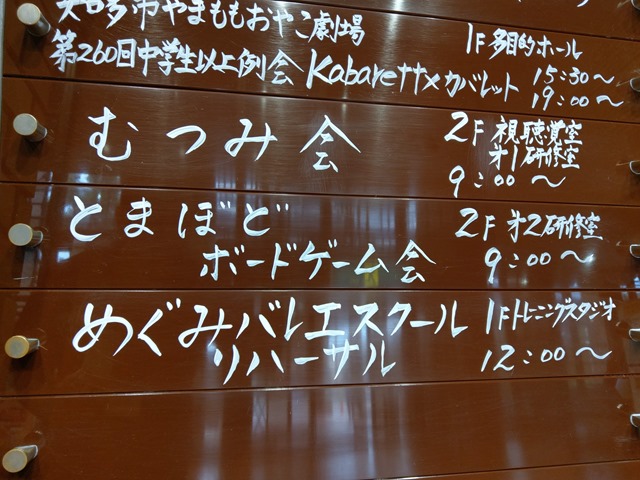 知多市やまももおやこ劇場
第260回中学生以上例会 Kabarett×カバレット
1F多目的ホール
15:30～
19:00～
むつみ会
2F 視聴覚室
オ1研修室
9:00～
とまぼど
ボードゲーム会
2F オ2研修室
9:00～
めぐみバレエスクール
リハーサル
1Fトレーニングスタジオ
12:00～